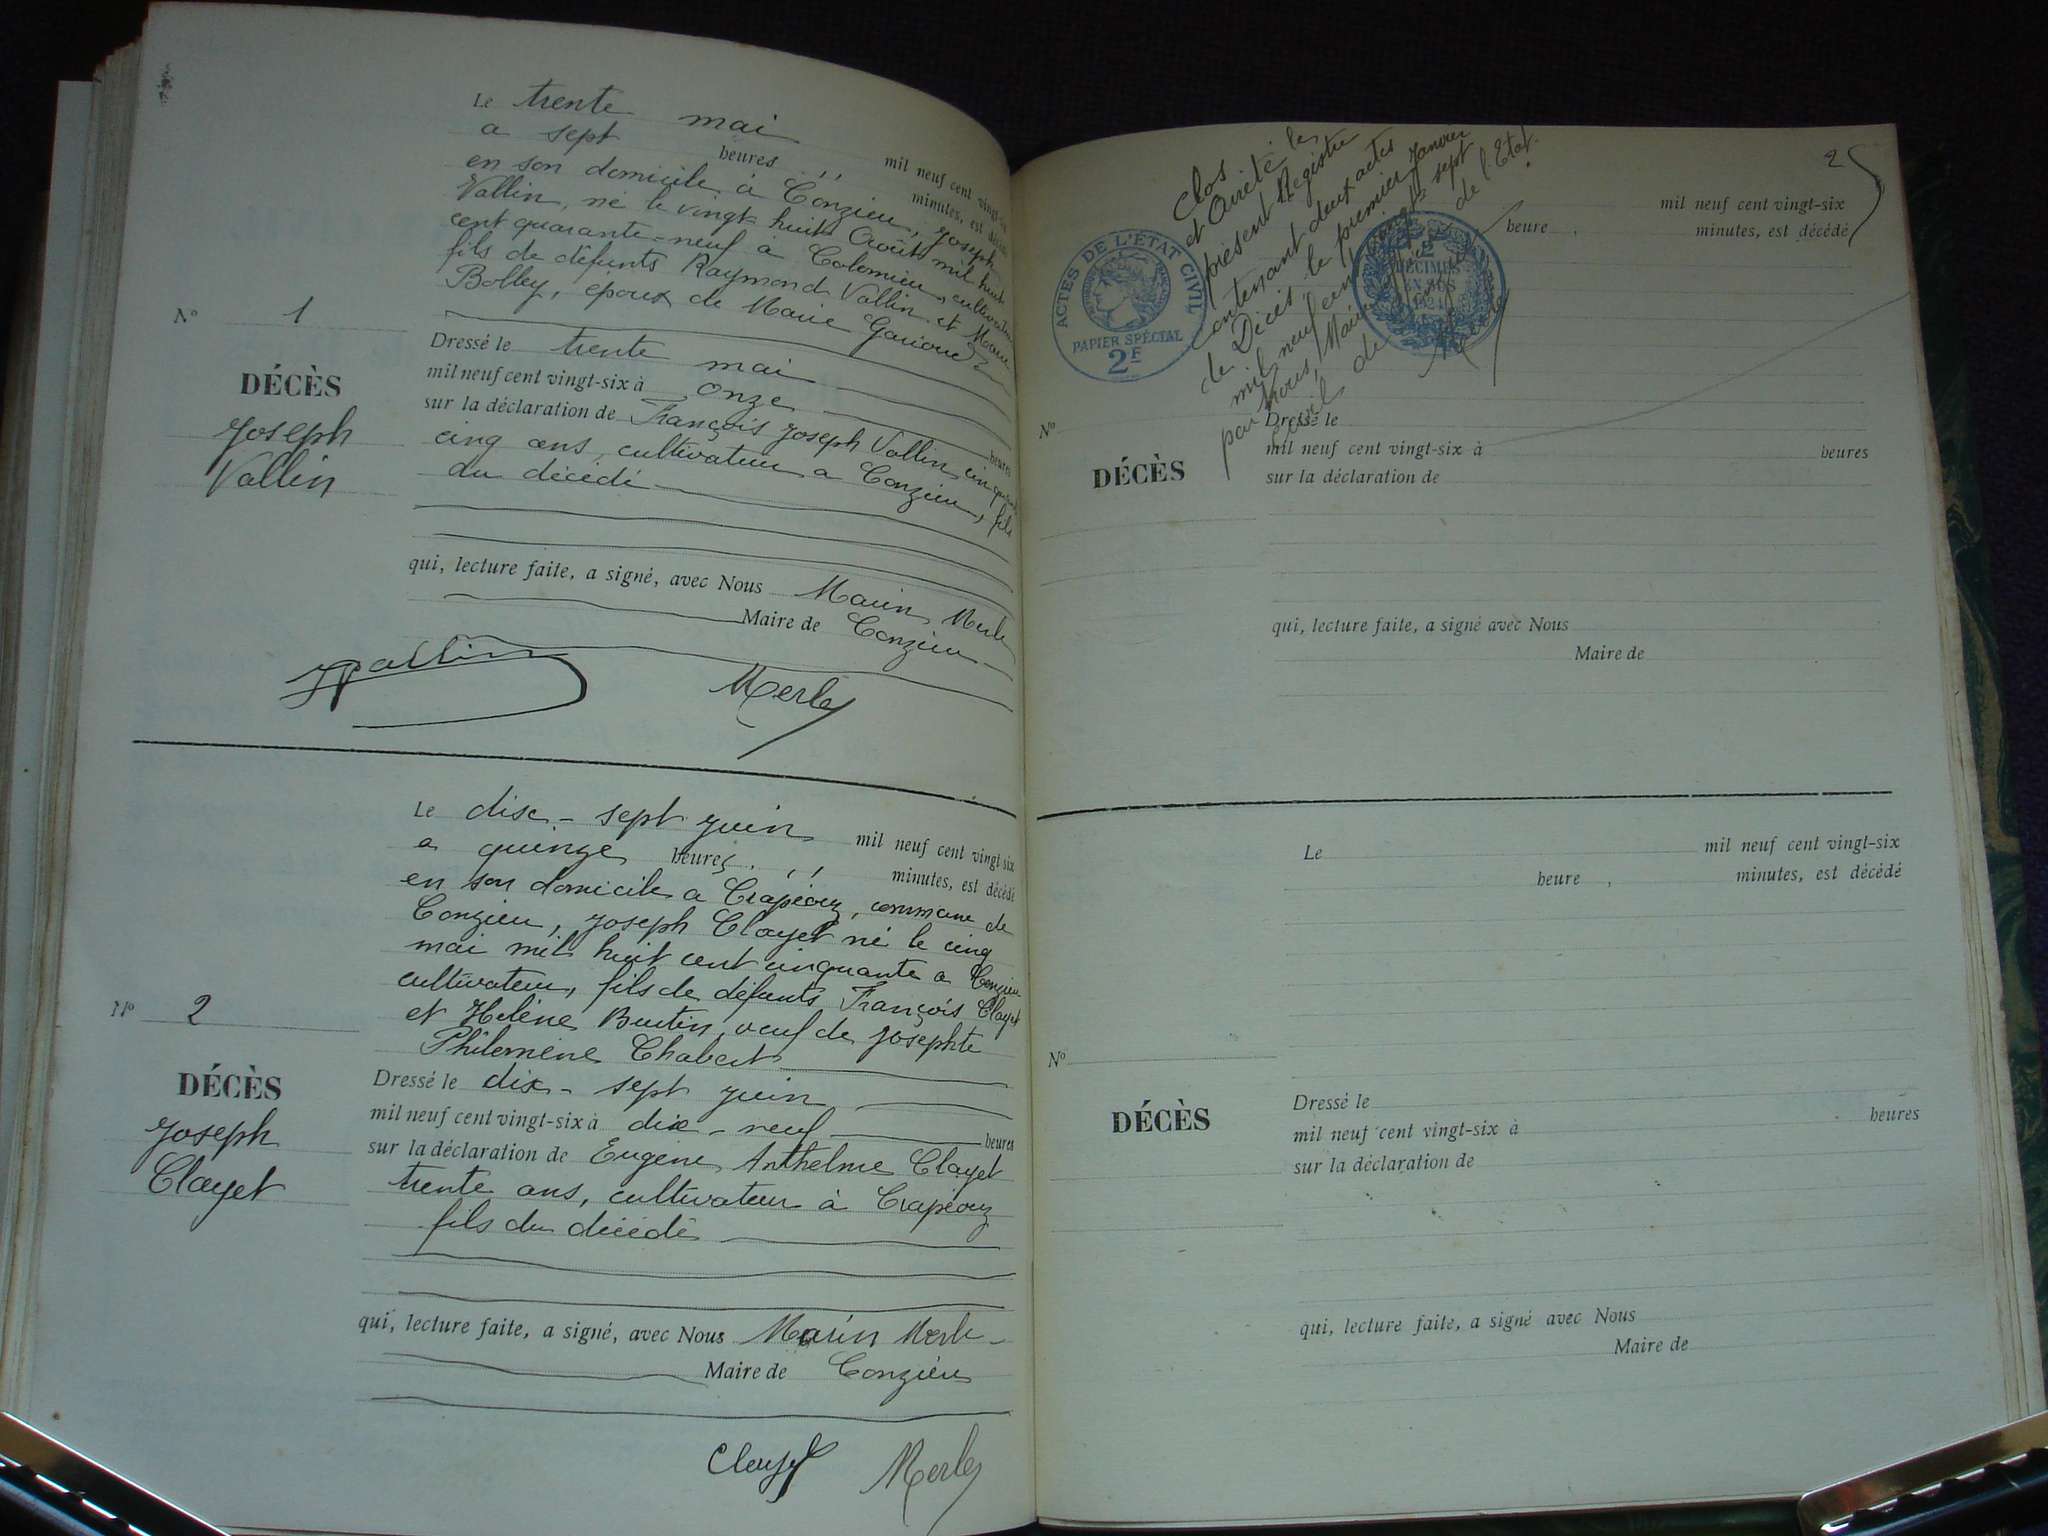 Le trente mai mil neuf cent vingt-six
a sept heures ,, minutes, est décédé
en son domicile à Conzieu, Joseph
Vallin, né le vingt huit Août mil huit
cent quarante-neuf à Colomieu, cultivateur
fils de défunts Raymond Vallin et Marie
Bolley, époux de Marie
N° 1
DÉCÈS
Joseph
Vallin
Dressé le trente mai
mil neuf cent vingt-six à onze heures
sur la déclaration de François Joseph Vallin cinquante
cinq ans, cultivateur a Conzieu, fils
du décédé
qui, lecture faite, a signé, avec Nous Marin Merle
Maire de Conzieu
JVallin Merle
Le dix-sept juin mil neuf cent vingt-six
a quinze heures ,, minutes, est décédé
en son domicile a Crapéouz, commune de
Conzieu, Joseph Clayet né le cinq
mai mil huit cent cinquante a Conzieu
cultivateur, fils de défunts François Clayet
et Hélène Burtin, veuf de Josephte
Philomène Chabert
N° 2
DÉCÈS
Joseph
Clayet
Dressé le dix-sept juin
mil neuf cent vingt-six à dix-neuf heures
sur la déclaration de Eugène Anthelme Clayet
trente ans, cultivateur à Crapéouz
fils du décédé
qui, lecture faite, a signé, avec Nous Marin Merle
Maire de Conzieu
Clayet Merle
2
Clos
et Arrêté le
présent Registre
contenant deux actes
de Décès le premier Janvier
mil neuf cent vingt sept
par Nous, Maire
civil de
de l'Etat
Merle
ACTES DE L'ÉTAT CIVIL
PAPIER SPÉCIAL
2F
2
DÉCIMES
EN SUS
1924
mil neuf cent vingt-six
heure minutes, est décédé
N°
DÉCÈS
Dressé le
mil neuf cent vingt-six à heures
sur la déclaration de
qui, lecture faite, a signé avec Nous
Maire de
Le mil neuf cent vingt-six
heure , minutes, est décédé
N°
DÉCÈS
Dressé le
mil neuf cent vingt-six à heures
sur la déclaration de
qui, lecture faite, a signé avec Nous
Maire de